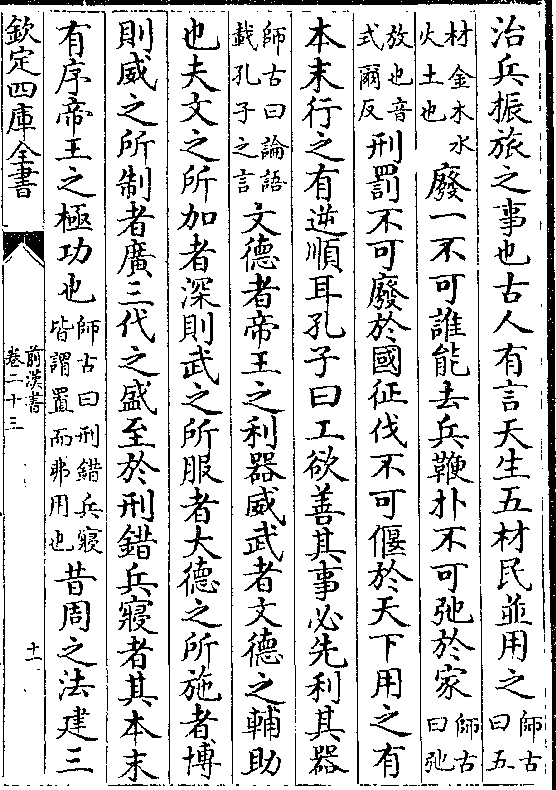 治兵振旅之事也古人有言天生五材民並用之師古曰五
材金木水火土也廢一不可誰能去兵鞭扑不可弛於家師古曰弛
放也音式爾反刑罰不可廢於國征伐不可偃於天下用之有
本末行之有逆順耳孔子曰工欲善其事必先利其器
師古曰論語載孔子之言文德者帝王之利器威武者文德之輔助
也夫文之所加者深則武之所服者大德之所施者博
則威之所制者廣三代之盛至於刑錯兵寢者其本末
有序帝王之極功也師古曰刑錯兵寢皆謂置而弗用也昔周之法建三
欽定四庫全書
前漢書
卷二十三
十一